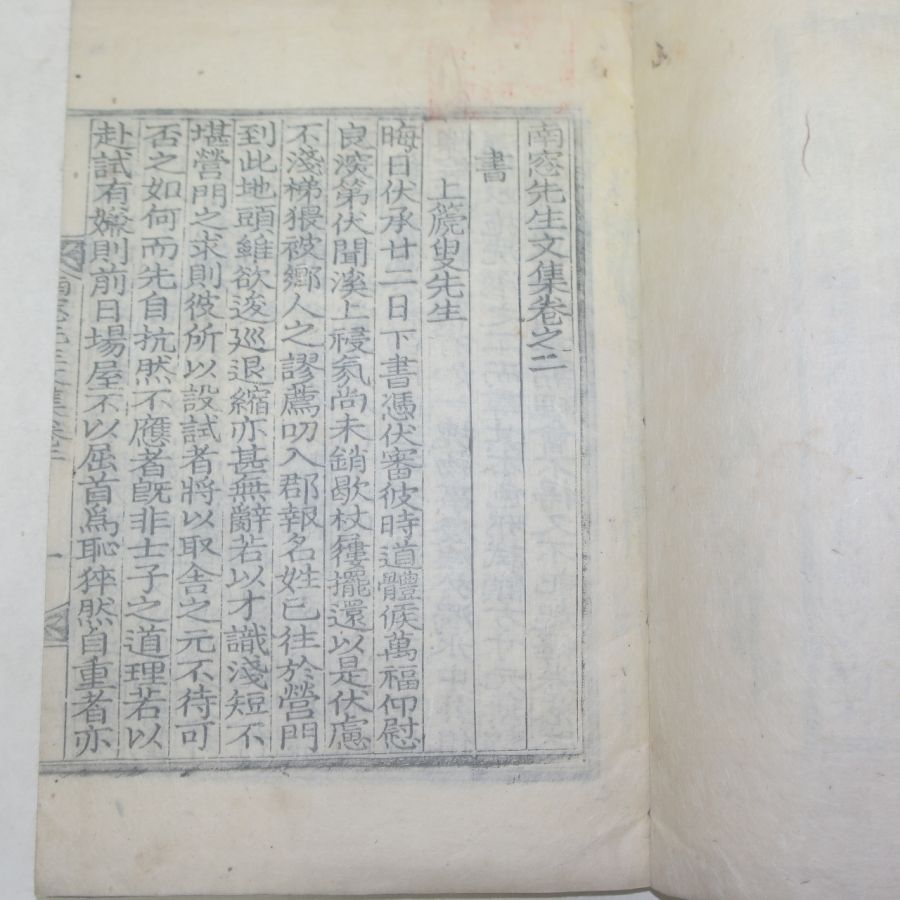 南窓先生文集卷之二
書
上篪叟先生
晦日伏承廿二日下書憑伏審彼時道體候萬福仰慰
良深第伏聞溪上祲氛尚未銷歇杖屨擺還以是伏慮
不淺梯猥被鄉人之謬薦叨入郡報名姓已往於營門
到此地頭雖欲逡廵退縮亦甚無辭若以才識淺短不
堪營門之求則彼所以設試者將以取舍之元不待可
否之如何而先自抗然不應者旣非士子之道理若以
赴試有嫌則前日場屋不以屈首爲恥猝然自重者亦
南窓先生文集卷二
一